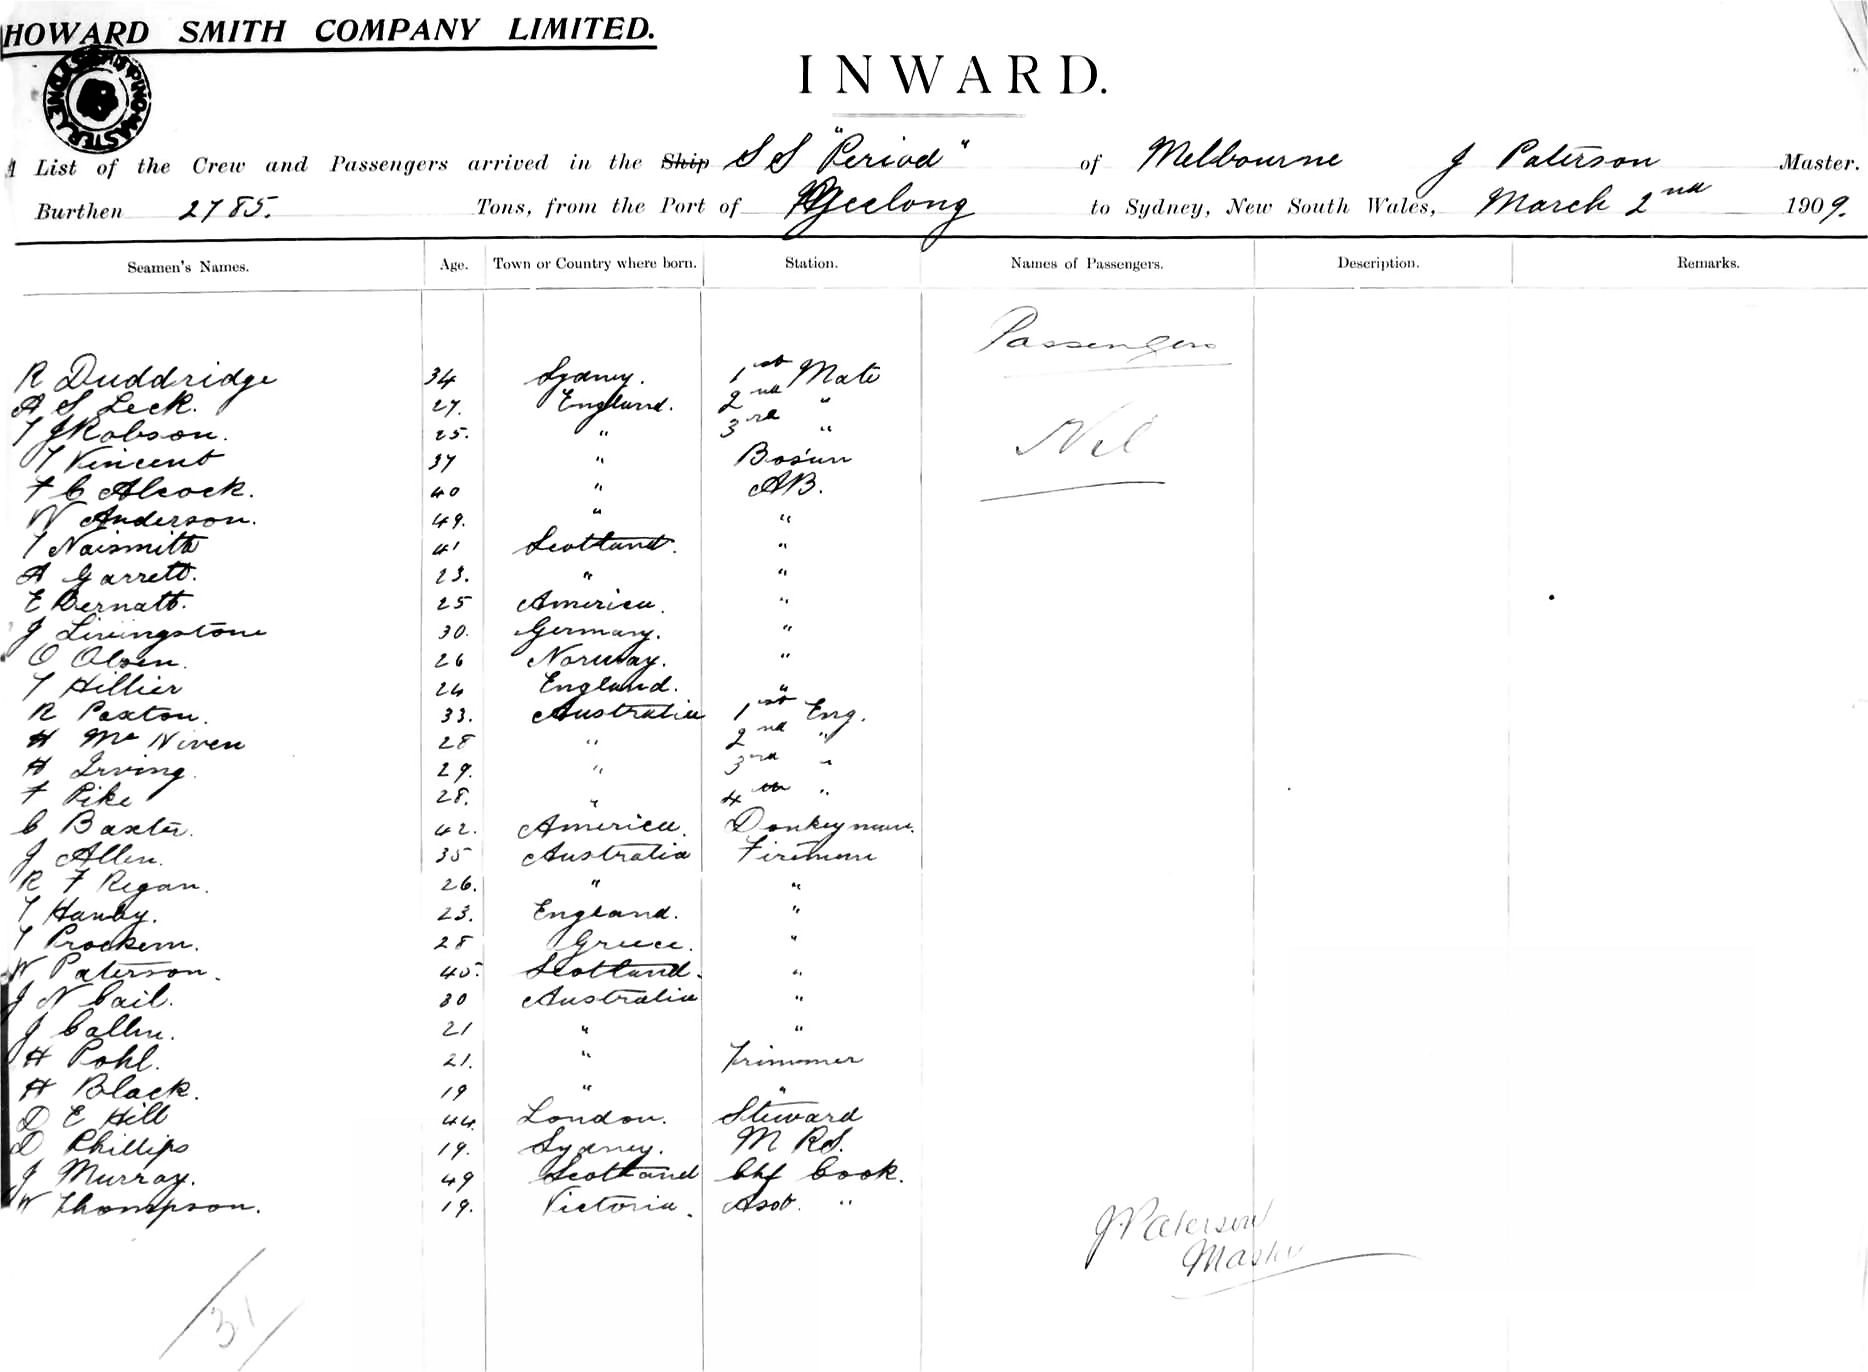 HOWARD SMITH COMPANY LIMITED.
INWARD.
A List of the Crew and Passengers arrived in the Ship S S "Period" of Melbourne J Paterson Master.
Burthen 2785. Tons, from the Port of Geelong to Sydney, New South Wales, March 2nd 1909.
Seamen's Names. Age. Town or Country where born. Station. Names of Passengers. Description. Remarks.
Passengers
R Duddridge 34 Sydney. 1st Mate
A S Leck. 27. England. 2nd "
T J Robson. 25. " 3rd "
Nil
T Vincent 37 " Bos'un
F C Alcock. 40 " AB.
W Anderson. 49. " "
T Naismith 41 Scotland. "
A Garrett. 23. " "
E Bernatt. 25 America. "
J Livingstone 30. Germany. "
O Olsen. 26 Norway. "
T Hillier 24 England. "
R Paxton. 33. Australia 1st Eng.
H Mc Niven 28 " 2nd "
H Irving. 29. " 3rd "
F Pike 28. " 4th "
C Baxter. 42. America. Donkeyman.
J Allen. 35 Australia Fireman
R F Regan. 26. " "
T Hanby. 23. England. "
T Prockern. 28 Greece. "
W Paterson. 45. Scotland. "
J N Cail. 30 Australia "
J Callen. 21 " "
H Pohl. 21. " Trimmer
H Black. 19 " "
D E Hill 44. London. Steward
D Phillips 19. Sydney. M R S.
J Murray. 49 Scotland Chf Cook.
W Thompson. 19. Victoria. Asst. "
J Paterson
Master
31